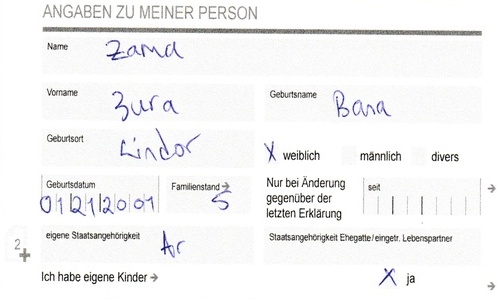 ANGABEN ZU MEINER PERSON
Name Zama
Vorname Zura
Geburtsname Bana
Geburtsort Lindor
X weiblich männlich divers
Geburtsdatum 01212001
Familienstand → 5
Nur bei Änderung gegenüber der letzten Erklärung
seit →
2+
eigene Staatsangehörigkeit Ar
Staatsangehörigkeit Ehegatte/eingetr. Lebenspartner
Ich habe eigene Kinder → X ja →